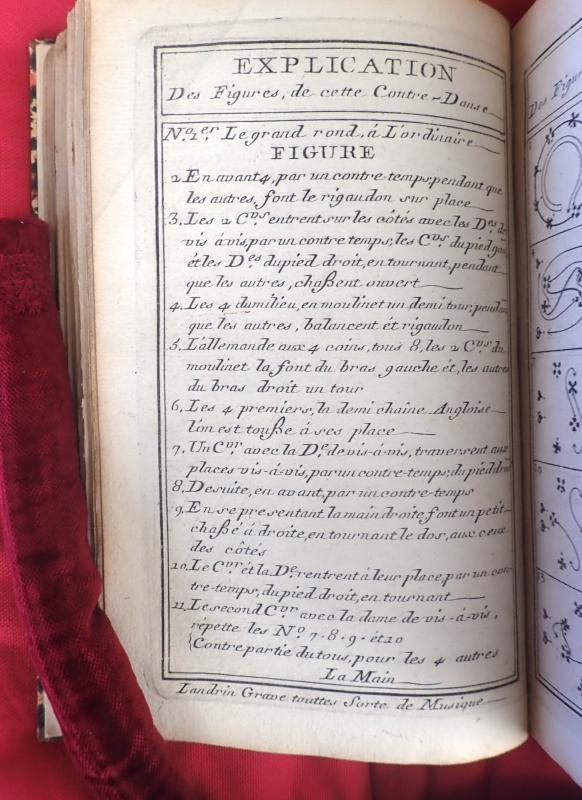 EXPLICATION
Des Figures, de cette Contre-Danse
N.º 1.er Le grand rond, á L'ordinaire
FIGURE
2 En avant 4, par un contre-temps, pendant que
les autres, font le rigaudon sur place
3. Les 2 C.vrs entrent sur les côtés avec les D.es de
vis à vis, par un contre temps, les C.vrs du pied gau
ét les D.es du pied droit, en tournant, pendant
que les autres, chaßent ouvert
4. Les 4 du milieu, en moulinet un demi tour, pendan
que les autres, balancent ét rigaudon
5. L'allemande aux 4 coins, tous 8, les 2 C.vrs du
moulinet la font du bras gauche ét, les autres
du bras droit un tour
6. Les 4 premiers, la demi chaîne Angloise
l'on est toußé á ses place
7. Un C.vr avec la D.e de vis-á-vis, traversent aux
places vis-á-vis, par un contre-temps, du pied droit
8. De suite, en avant, par un contre-temps
9. En se presentant la main droite, font un petit
chaßé á droite, en tournant le dos, aux ceux
des côtés
10. Le C.vr ét la D.e rentrent á leur place, par un con
tre-temps, du pied droit, en tournant
11. Le second C.vr avec la dame de vis-á-vis,
répette les N.º 7-8-9-ét 10
Contre partie du tous, pour les 4 autres
La Main
Landrin Grave touttes Sorte de Musique
Des Figu